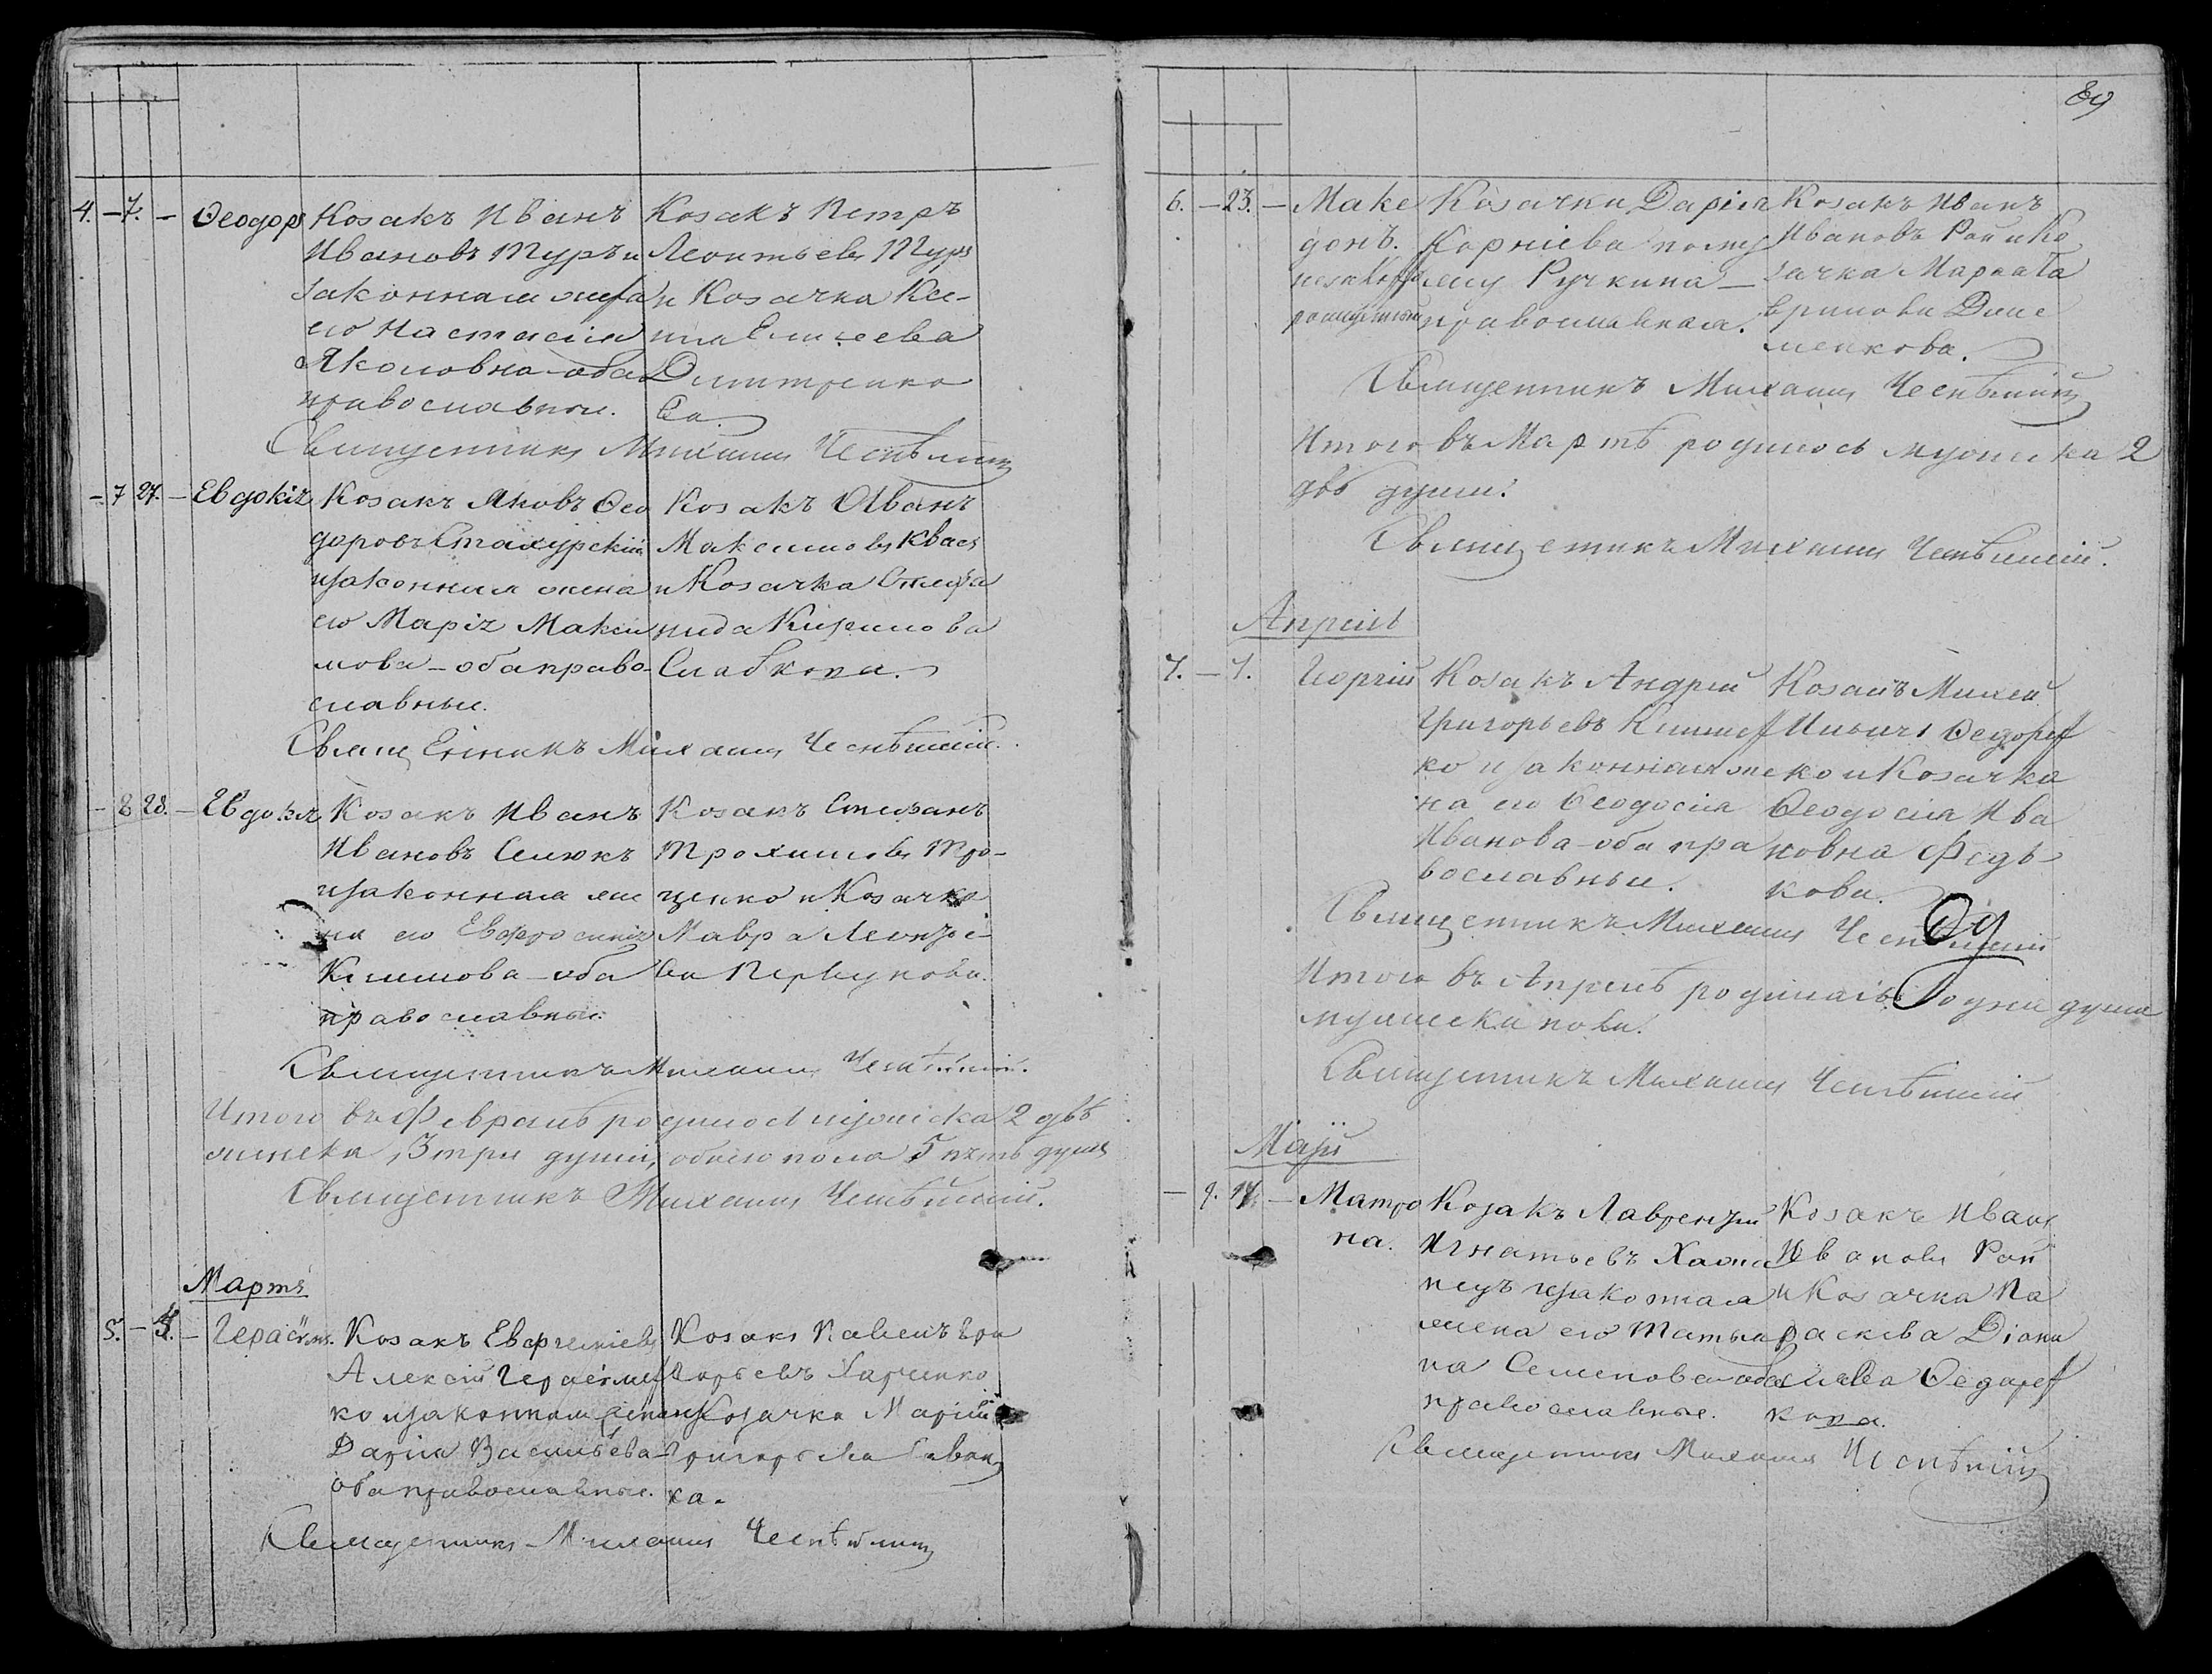 4. – 7. –
Ѳеодоръ
Козакъ Иванъ
Ивановъ Туръ и
законная жена
его Настасія
Яковловна оба
православные.
Козакъ Петръ
Леонтьевъ Туръ
и Козачка Ксе-
нія Елисеева
Дмитренко
ва.
Священникъ Михаилъ
– 7 27. –
Евдокія
Козакъ Яковъ Ѳео
доровъ Стахурскій
и законная жена
его Марія Макси
мова – оба право-
славные.
Козакъ Иванъ
Максимовъ Квась
и Козачка Степа
нида Кирилова
Слабкова.
Священникъ Михаилъ
– 8 28. –
Евдокія
Козакъ Иванъ
Ивановъ Селюкъ
и законная же
на его Евфросинія
Климова – оба
православные.
Козакъ Стефанъ
Трохимовъ Тро-
ценко и Козачка
Мавра Леонтіе-
ва
Священникъ Михаилъ
Итого въ Февралѣ родилось мужеска 2 двѣ
женска, 3 три души, обоего пола 5 пять душъ
Священникъ Михаилъ
Мартъ
5. –
Герасимъ.
Козакъ
Алексій Герасимен
ко и законная жена
Дарія Васильева
оба православные.
Козакъ Павелъ Гри
горьевъ Харченко
и Козачка Марія
Григорьева
ка.
Священникъ Михаилъ
89
6. – 23. –
Маке
донъ.
незаконно
рожденный
Козачки Дарія
Корніева по му
жу Ручкина –
православная.
Козакъ Иванъ
Ивановъ Рой и Ко
зачка Марѳа Га
врилова Дани
ленкова.
Священникъ Михаилъ
Итого въ Мартѣ родилось мужеска 2
двѣ души.
Священникъ Михаилъ
Апрѣль
7. – 7.
Георгій
Козакъ Андрей
Григорьевъ Климен
ко и законная же
на его Ѳеодосія
Иванова – оба пра
вославные.
Козакъ Михей
Ильичъ Ѳедорен
ко и Козачка
Ѳеодосія Ива
новна Федь
кова.
Священникъ Михаилъ
Итого въ Апрѣлѣ родилась 1 одна душа
мужеска пола.
Священникъ Михаилъ
Маій
– 9. 17. –
Матро
на.
Козакъ Лаврентій
Игнатьевъ
и законная
жена его Татья
на Семенова – оба
православные.
Козакъ Иванъ
Ивановъ Рой
и Козачка Па
раскева Діони
сіева Ѳедорен
кова.
Священникъ Михаилъ